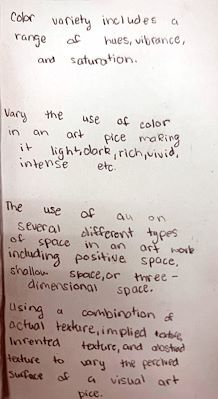 Color variety includes a
range of hues, vibrance,
and saturation.
Vary the use of color
in an art pice making
it light, dark, rich, vivid,
intense etc.
The use of au on
several different types
of space in an art work
including positive space,
shallow space, or three-
dimensional space.
Using a combination of
actual texture, implied texture,
Invented texture, and
texture to vary the
surface of a visual art
pice.